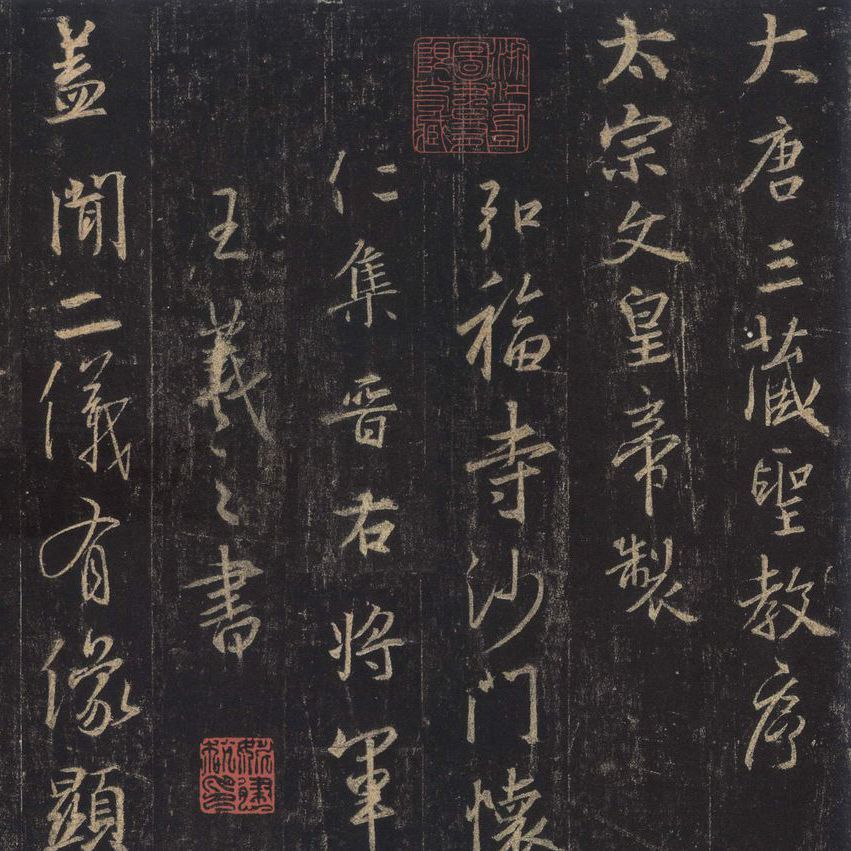 大唐三藏聖教序
太宗文皇帝製
弘福寺沙門懷
仁集晉右將軍
王羲之書
蓋聞二儀有像顯